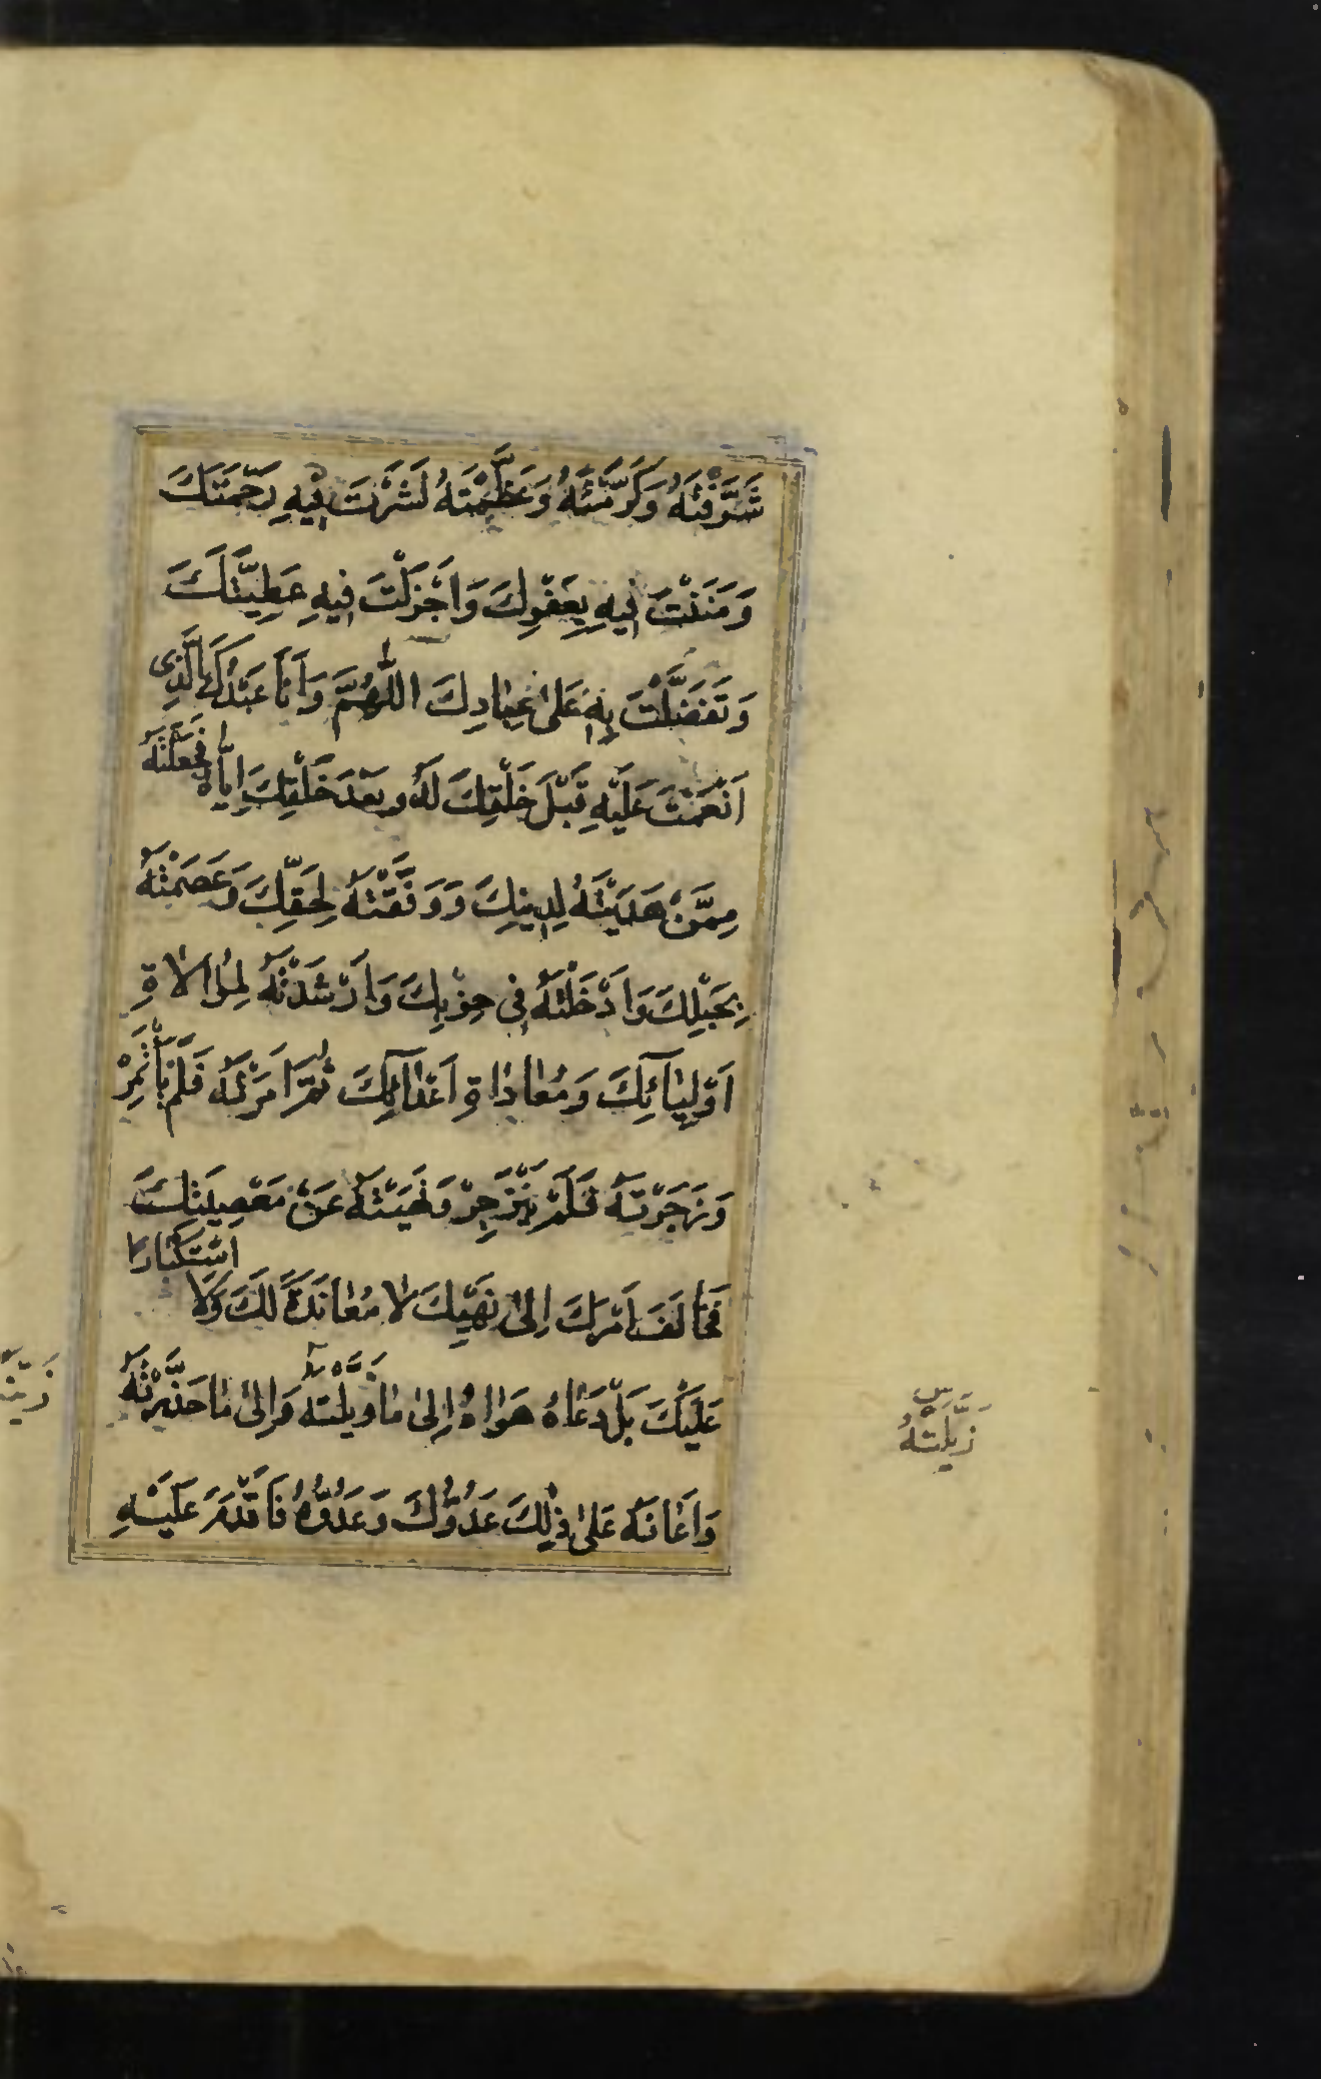 شَرَّفْتَهُ وَكَرَّمْتَهُ وَعَظَّمْتَهُ نَشَرْتَ فِيهِ رَحْمَتَكَ
وَمَنَنْتَ فِيهِ بِعَفْوِكَ وَاَجْزَلْتَ فِيهِ عَطِيَّتَكَ
وَتَفَضَّلْتَ بِهِ عَلىٰ عِبادِكَ اللّٰهُمَّ وَاَنَا عَبْدُكَ الَّذِى
اَنْعَمْتَ عَلَيْهِ قَبْلَ خَلْقِكَ لَهُ وبَعْدَ خَلْقِكَ اِيّاهُ فَجَعَلْتَهُ
مِمَّنْ هَدَيْتَهُ لِدِينِكَ وَوَفَّقْتَهُ لِحَقِّكَ وَعَصَمْتَهُ
بِحَبْلِكَ وَاَدْخَلْتَهُ فِى حِزْبِكَ وَاَرْشَدْتَهُ لِمُوالاةِ
اَوْلِيٰآئِكَ وَمُعاداةِ اَعْدآئِكَ ثُمَّ اَمَرْتَهُ فَلَمْ يَأْتَمِرْ
وَزَجَرْتَهُ فَلَمْ يَنْزَجِرْ وَنَهَيْتَهُ عَنْ مَعْصِيَتِكَ
فَخٰالَفَ اَمْرَكَ اِلىٰ نَهْيِكَ لا مُعٰانَدَةً لَكَ وَلَا اسْتِكْبارا
عَلَيْكَ بَلْ دَعٰاهُ هَوٰاهُ اِلىٰ مٰا زَيَّلْتَهُ وَاِلىٰ مٰا حَذَّرْتَهُ
وَاَعٰانَهُ عَلىٰ ذٰلِكَ عَدُوُّكَ وَعَدُوُّهُ فَاَقْدَمَ عَلَيْهِ
زَيَّلْتَهُ س